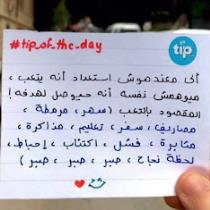 #tip_of_the_day
tip
أي معندهوش استعداد أنه يتعب،
ميوهمش نفسه أنه حيوصل لهدفه!
المقصود بالتعب (سهر، مرمطة،
مصاريف، سفر، تعليم، مذاكرة،
مثابرة، فشل، اكتئاب، إحباط،
لحظة نجاح، صبر، صبر، صبر)